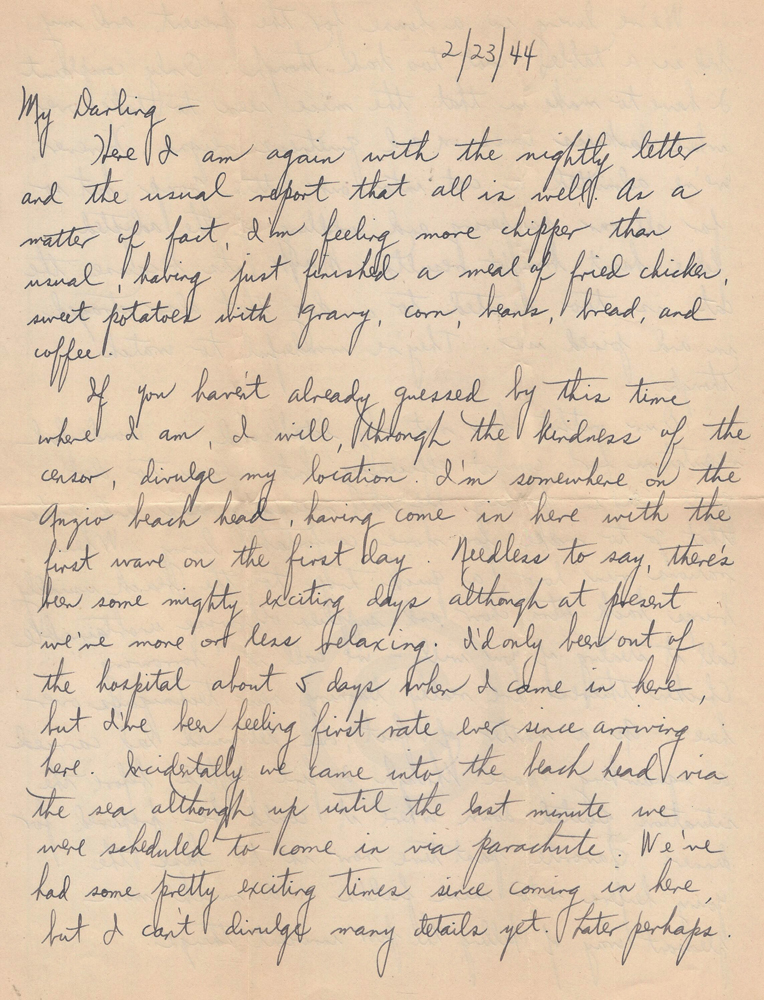 2/23/44
My Darling -
Here I am again with the nightly letter
and the usual report that all is well. As a
matter of fact, I'm feeling more chipper than
usual, having just finished a meal of fried chicken,
sweet potatoes with gravy, corn, beans, bread, and
coffee.
If you haven't already guessed by this time
where I am, I will, through the kindness of the
censor, divulge my location. I'm somewhere on the
Anzio beach head, having come in here with the
first wave on the first day. Needless to say, there's
been some mighty exciting days although at present
we're more or less relaxing. I'd only been out of
the hospital about 5 days when I came in here,
but I've been feeling first rate ever since arriving
here. Incidentally we came into the beach head via
the sea although up until the last minute we
were scheduled to come in via parachute. We've
had some pretty exciting times since coming in here,
but I can't divulge many details yet. Later perhaps.